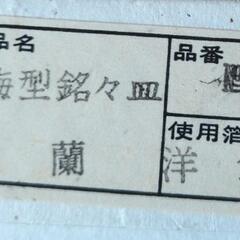 品名
型銘々皿
蘭
品番
使用箔
洋